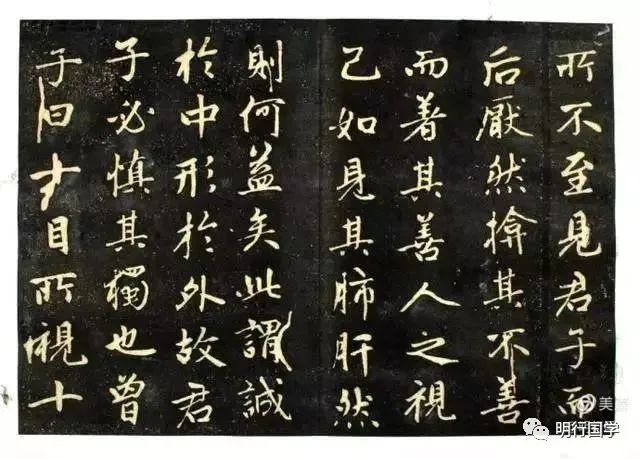 所不至見君子而
后厭然揜其不善
而著其善人之視
己如見其肺肝然
則何益矣此謂誠
於中形於外故君
子必慎其獨也曾
子曰十目所視十
美篇
明行国学